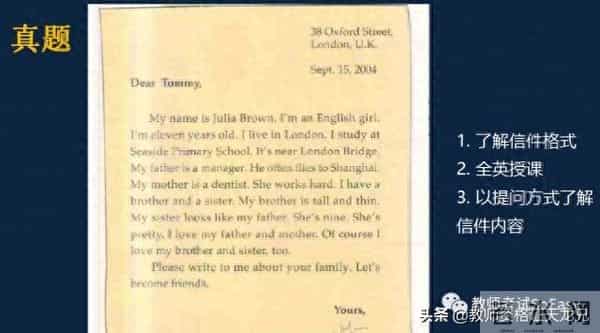 真题
38 Oxford Street,
London, U.K.
Sept. 15, 2004
Dear Tommy,
My name is Julia Brown. I'm an English girl.
I'm eleven years old. I live in London. I study at
Seaside Primary School. It's near London Bridge.
My father is a manager. He often flies to Shanghai.
My mother is a dentist. She works hard. I have a
brother and a sister. My brother is tall and thin.
My sister looks like my father. She's nine. She's
pretty. I love my father and mother. Of course I
love my brother and sister, too.
Please write to me about your family. Let's
become friends.
Yours,
1. 了解信件格式
2. 全英授课
3. 以提问方式了解
信件内容
教师考试SoEasy
头条